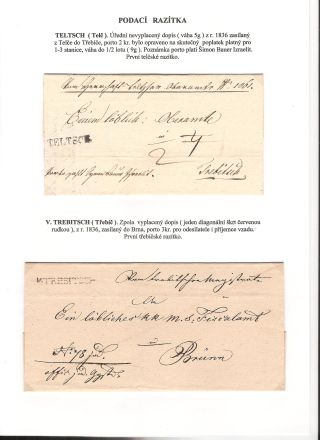 PODACÍ RAZÍTKA
TELTSCH ( Telč ). Úřední nevyplacený dopis ( váha 5g ) z r. 1836 zasílaný
z Telče do Třebíče, porto 2 kr. bylo opraveno na skutečný poplatek platný pro
1-3 stanice, váhu do 1/2 lotu ( 9g ). Poznámka porto platí Šimon Bauer Izraelit.
První telčské razítko.
TELTSCH
Trebitsch
V. TREBITSCH ( Třebíč ). Zpola vyplacený dopis ( jeden diagonální škrt červenou
rudkou ), z r. 1836, zasílaný do Brna, porto 3kr. pro odesilatele i příjemce vzadu.
První třebíčské razítko.
V. TREBITSCH
Vom trebitscher Magistrate
An
Ein löbliches kk m. s. Fiscalamt
in
Brünn